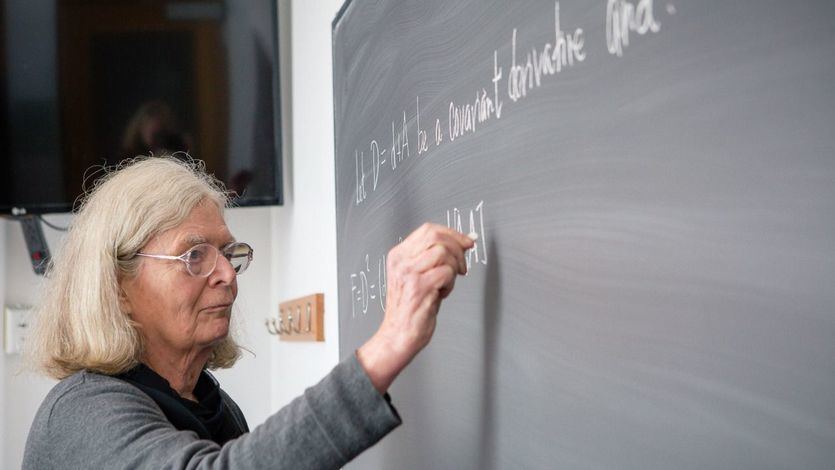 let D = d+A be a covariant derivative and.
F=D²=(
A]